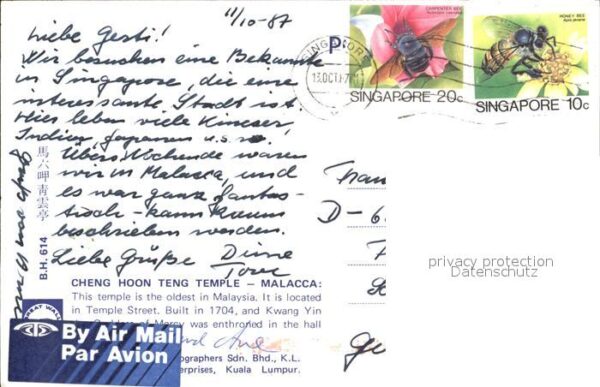 11/10-87
Liebe Gesti!
Wir besuchen eine Bekannte
in Singapore, die eine
interessante Stadt ist.
Hier leben viele Kineser,
Indier, Japaner u.s.w.
Übers Wochende waren
wir in Malacca, und
es war ganz fantas-
tisch - kann kaum
beschrieben werden.
Liebe Grüße
Tove
馬六呷青雲亭
B.H. 614
CHENG HOON TENG TEMPLE – MALACCA:
This temple is the oldest in Malaysia. It is located
in Temple Street. Built in 1704, and Kwang Yin
Mercy was enthroned in the hall
ographers Sdn. Bhd., K.L.
erprises, Kuala Lumpur.
GREAT WALL
By Air Mail
Par Avion
SINGAPORE
13 OCT
CARPENTER BEE
SINGAPORE 20c
HONEY BEE
SINGAPORE 10c
Frau
D-6
privacy protection
Datenschutz